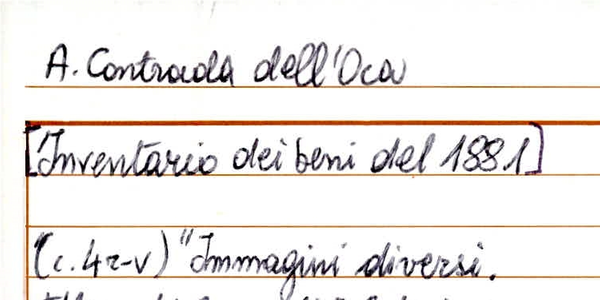 A. Contrada dell'Oca
[Inventario dei beni del 1881]
(c. 4r-v) "Immagini diversi.